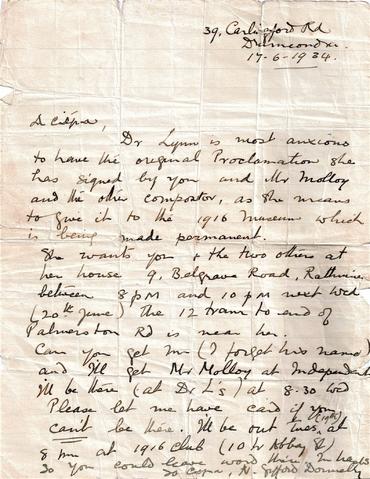 39, Carlingford Rd
Drumcondra.
17-6-1934.
A Chara,
Dr Lynn is most anxious
to have the original Proclamation she
has signed by you and Mr Molloy
and the other compositor, as she means
to give it to the 1916 Museum which
is being made permanent.
She wants you & the two others at
her house 9, Belgrave Road, Rathmines
between 8 pm and 10 pm next Wed
(20th June) The 12 tram to end of
Palmerston Rd is near her.
Can you get Mr (I forget his name)
and I'll get Mr Molloy at Independent
I'll be there (at Dr L's) at 8-30 Wed
Please let me have card if you
can't be there. I'll be out tues. at (19th)
8 pm at 1916 Club (10 Lr Abbey St)
So you could leave word there.
N. Gifford Donnelly